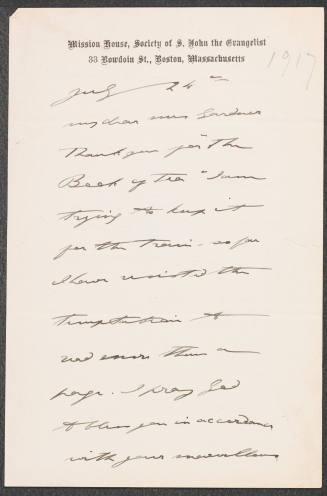 Mission House, Society of S. John the Evangelist
33 Bowdoin St., Boston, Massachusetts
1917
July 24th
my dear Mrs Gardner
Thank you for "The
Book of Tea" I am
trying to keep it
for the train - so far
I have resisted the
temptation to
read more than a
page. I pray God
to bless you in accordance
with your marvellous